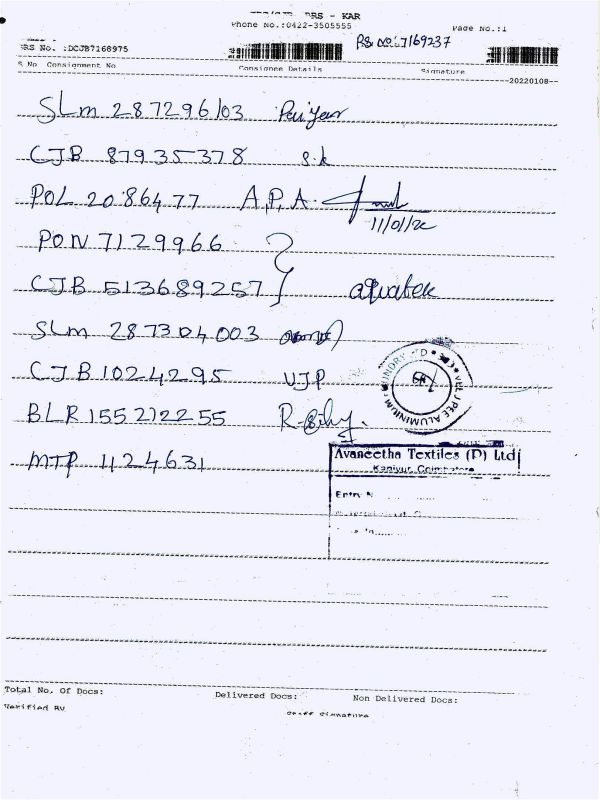 DRS - KAR
Phone No.:0422-3505555
Page No.:1
DRS No. :DCJB7168975
RS No: 7169237
S No Consignment No Consignee Details Signature
--20220108--
SLM 287296103 Periyar
CJB 87935378 S.k
POL 2086477 A.P.A.
11/01/22
PON 7129966
CJB 513689257 aquatek
SLM 287304003
CJB 1024295 VJP
BLR 155212255
MTP 1124631
ALUMINIUM
Avaneetha Textiles (P) Ltd
Kaniyur, Coimbatore
Entry N
Total No. Of Docs: Delivered Docs: Non Delivered Docs:
Verified By
Staff Signature